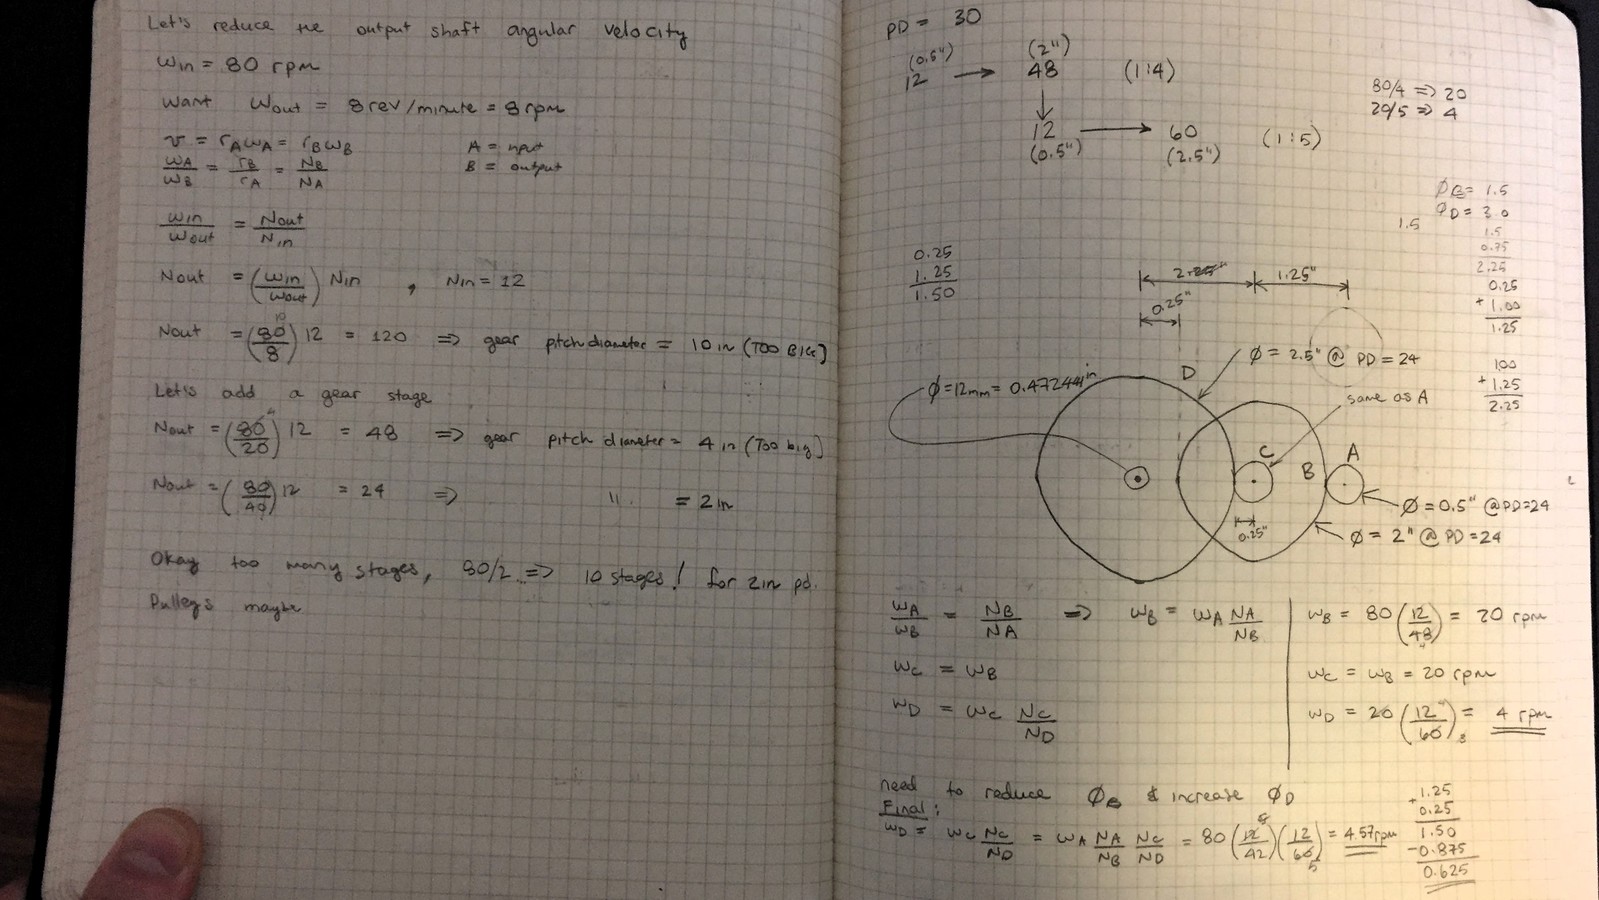 Let's reduce the output shaft angular velocity
ωin = 80 rpm
Want ωout = 8 rev/minute = 8 rpm
v = rAωA = rBωB
A = input
ωA/ωB = rB/rA = NB/NA
B = output
ωin/ωout = Nout/Nin
Nout = (ωin/ωout) Nin , Nin = 12
10
Nout = (80/8) 12 = 120 => gear pitch diameter = 10 in (TOO BIG)
Let's add a gear stage
Nout = (80/20) 12 = 48 => gear pitch diameter = 4 in (Too big)
Nout = (80/40) 12 = 24 => " = 2 in
Okay too many stages, 80/2 => 10 stages! for 2in pd.
Pulleys maybe
PD = 30
(0.5") (2")
12 → 48 (1:4)
80/4 => 20
20/5 => 4
12 → 60 (1:5)
(0.5") (2.5")
ØB = 1.5
ØD = 3.0
1.5
1.5
0.75
2.25
0.25
+ 1.00
1.25
1.00
+ 1.25
2.25
0.25
1.25
1.50
2.25" 1.25"
0.25"
D
Ø = 2.5" @ PD = 24
Ø = 12mm = 0.47244in
same as A
C
B
A
Ø = 0.5" @ PD = 24
0.25"
Ø = 2" @ PD = 24
ωA/ωB = NB/NA => ωB = ωA NA/NB
ωB = 80 (12/48) = 20 rpm
ωC = ωB
ωC = ωB = 20 rpm
ωD = ωC NC/ND
ωD = 20 (12/60) = 4 rpm
need to reduce ØB & increase ØD
Final:
ωD = ωC NC/ND = ωA NA/NB NC/ND = 80 (12/42)(12/60) = 4.57 rpm
1.25
+ 0.25
1.50
-0.875
0.625